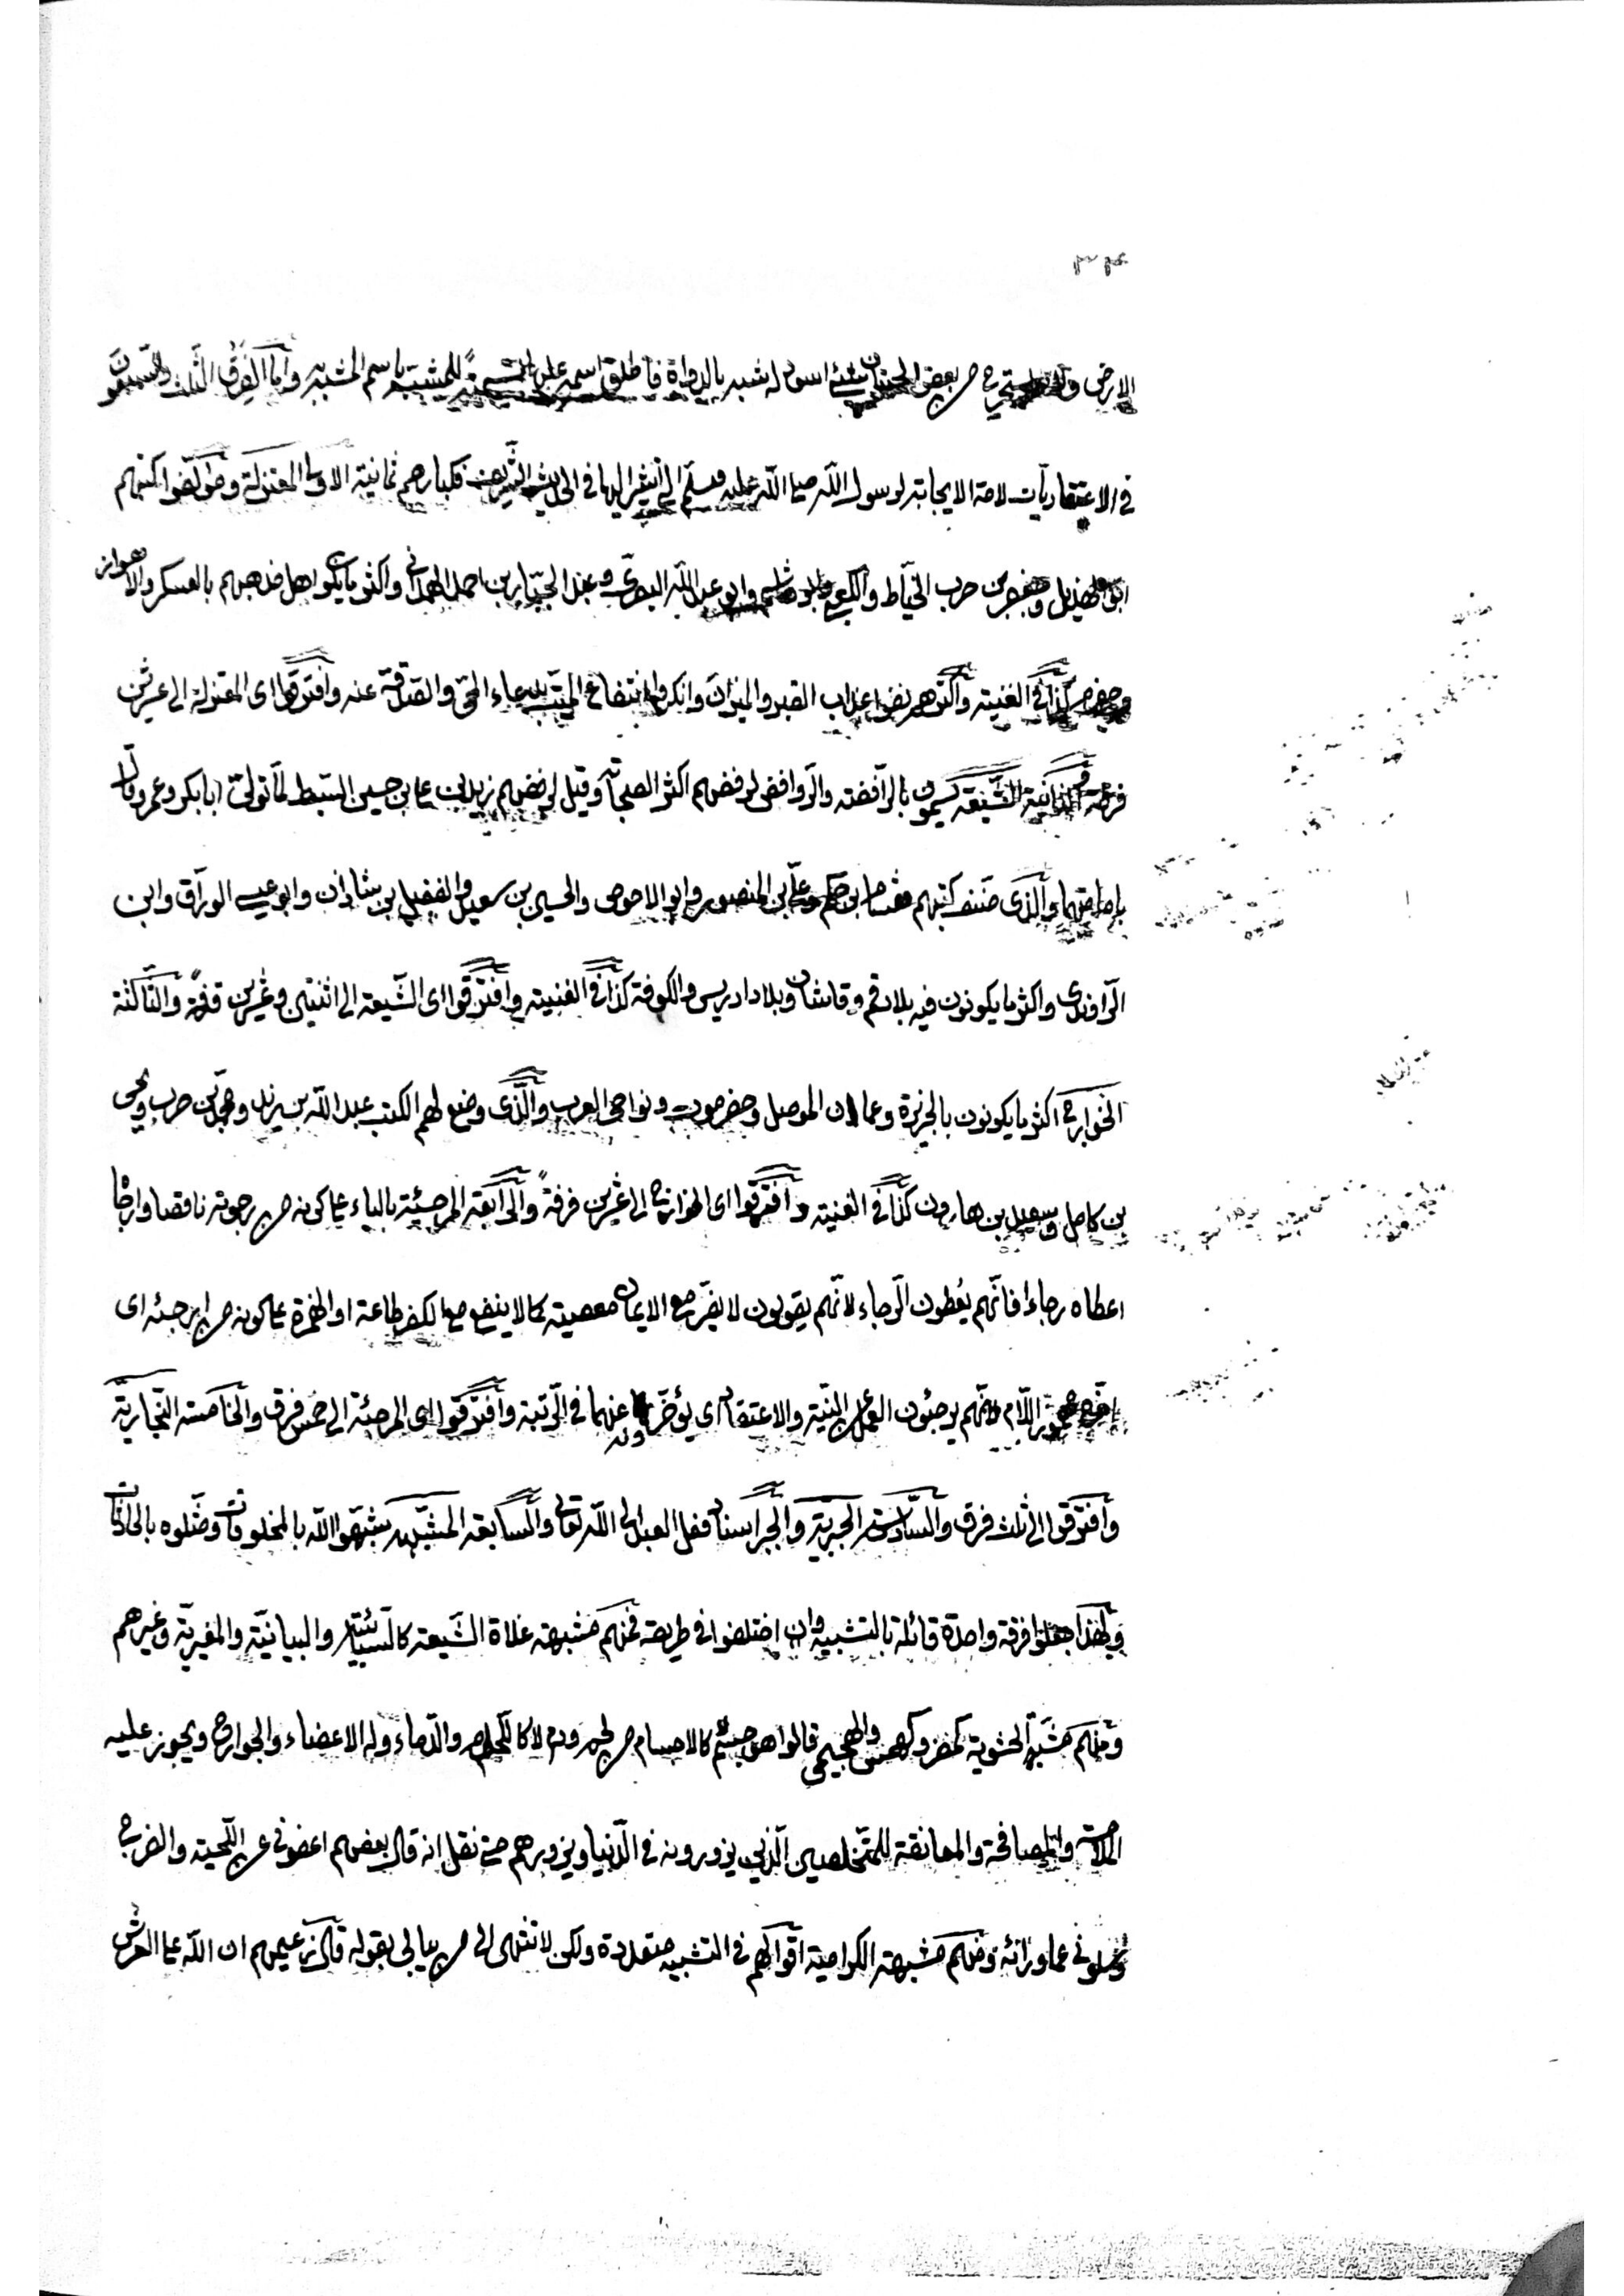 الارض و يستخرج من بعض الحيتان شئ اسود له شبه بالدواة فاطلق اسمه على تسمية للمشبّه باسم المشبه به وامّا الفرق الثلث والسبعون
في الاعتقاديات لامة الاجابة لرسول الله صلى الله عليه وسلّم التي اشير اليها في الحديث الشريف فكبارهم ثمانية الاولى المعتزلة ومؤلّفوا كتبهم
ابو الهذيل وجعفر بن حرب الخيّاط والكعبي وابو هاشم وابو عبد الله البصري وعبد الجبّار بن احمد الهمداني واكثر ما يكون اهل مذهبهم بالعسكر والاهواز
كذا في الغنية واكثرهم نفوا عذاب القبر والميزان وانكروا انتفاع الميّت بدعاء الحيّ والصدقة عنه وافترقوا اى المعتزلة الى عشرين
فرقة والثانية الشّيعة يسمّون بالرّافضة والرّوافض لرفضهم اكثر الصحابة وقيل لرفضهم زيد بن على بن حسين السّبط لمّا تولّى ابا بكر وعمر وقال
بامامتهما والّذى صنّف كتبهم هشام بن حكم وعلىّ بن المنصور وابو الاحوص والحسين بن سعيد والفضل بن شاذان وابو عيسى الورّاق وابن
الرّاوندى واكثر ما يكونون فيه بلاد قم وقاشان وبلاد ادريس والكوفة كذا في الغنية وافترقوا اى الشّيعة الى اثنتين وعشرين فرقة والثّالثة
الخوارج اكثر ما يكونون بالجزيرة وعمان الموصل وحضرموت ونواحى العرب والّذى وضع لهم الكتب عبد الله بن يزيد ومحمّد بن حرب ويحيى
بن كامل وسعيد بن هارون كذا في الغنية وافترقوا اى الخوارج الى عشرين فرقةً والرّابعة المرجئة بالياء على كونه من رجوته ناقصا وارجا
اعطاه رجاءً فانّهم يُعطون الرّجاء لانّهم يقولون لا يضرّ مع الايمان معصية كما لا ينفع مع الكفر طاعة او الهمزة على كونه من ارجئه اى
اخّره مهموز اللّام لانّهم يرجئون العمل عن النيّة والاعتقاد اى يؤخّرونه عنهما في الرّتبة وافترقوا اى المرجئة الى خمس فرق والخامسة النّجاريّة
وافترقوا الى ثلث فرق والسّادسة الجبريّة والجبر اسناد فعل العبد الى الله تعالى والسّابعة المشبّهة شبّهوا الله بالمخلوقات ومثّلوه بالحادثات
ولهذا جعلوا فرقة واحدة قائلة بالتشبيه وان اختلفوا في طريقه فمنهم مشبهة غلاة الشّيعة كالسّبائيّة والبيانيّة والمغيريّة وغيرهم
ومنهم مشبّهة الحشوية كمضر وكهمس والهجيمى قالوا هو جسم كالاجسام من لحم ودم لا كاللّحوم والدّماء وله الاعضاء والجوارح ويجوز عليه
الملامسة والمصافحة والمعانقة للمخلصين الّذين يزورونه في الدّنيا ويزورهم حتى نقل انه قال بعضهم اعفونى عن اللّحية والفرج
وسلونى عما ورائه ومنهم مشبهة الكرامية اقوالهم في التشبيه متعددة ولكن لا تنتهى الى من يبالى بقوله قال زعيمهم ان الله على العرش